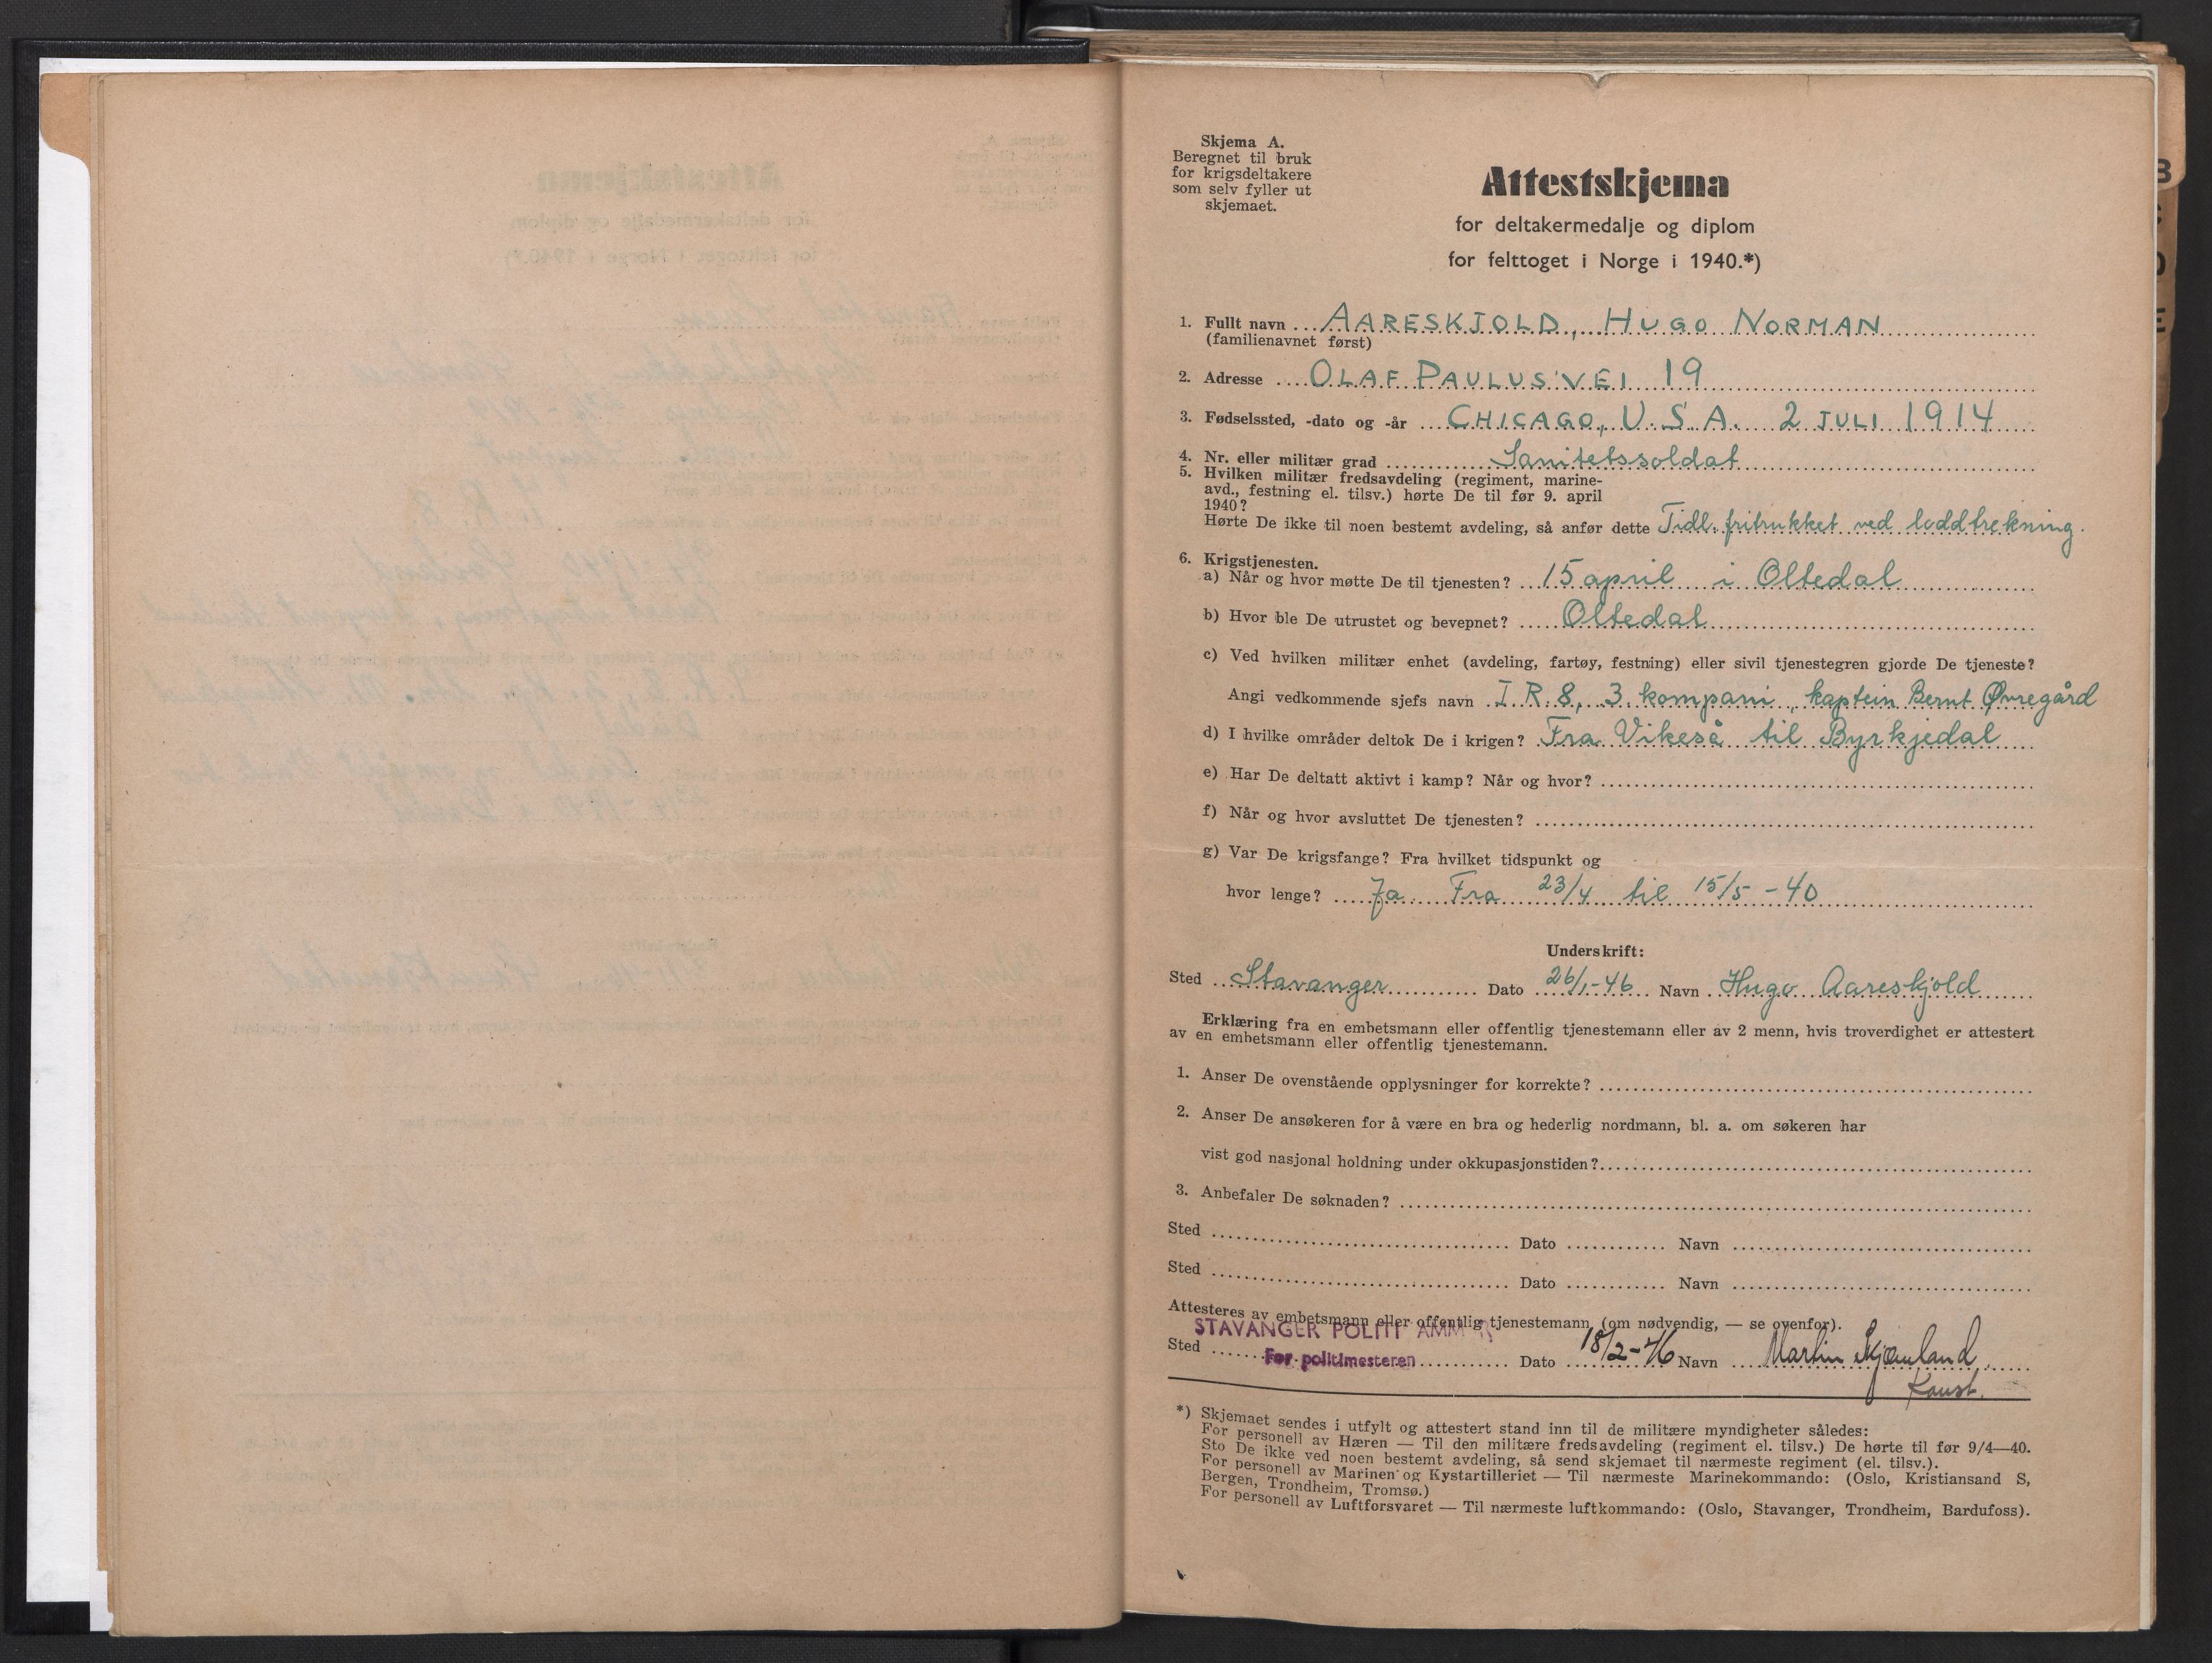 Skjema A.
Beregnet til bruk
for krigsdeltakere
som selv fyller ut
skjemaet.
Attestskjema
for deltakermedalje og diplom
for felttoget i Norge i 1940.*)
1. Fullt navn AARESKJOLD, HUGO NORMAN
(familienavnet først)
2. Adresse OLAF PAULUS' VEI 19
3. Fødselssted, -dato og -år CHICAGO, U.S.A. 2 JULI 1914
4. Nr. eller militær grad Sanitetssoldat
5. Hvilken militær fredsavdeling (regiment, marine-
avd., festning el. tilsv.) hørte De til før 9. april
1940?
Hørte De ikke til noen bestemt avdeling, så anfør dette Tidl. fritrukket ved loddtrekning.
6. Krigstjenesten.
a) Når og hvor møtte De til tjenesten? 15 april i Oltedal
b) Hvor ble De utrustet og bevepnet? Oltedal
c) Ved hvilken militær enhet (avdeling, fartøy, festning) eller sivil tjenestegren gjorde De tjeneste?
Angi vedkommende sjefs navn I.R. 8, 3. kompani, kaptein Bernt Øvregård
d) I hvilke områder deltok De i krigen? Fra Vikeså til Byrkjedal
e) Har De deltatt aktivt i kamp? Når og hvor?
f) Når og hvor avsluttet De tjenesten?
g) Var De krigsfange? Fra hvilket tidspunkt og
hvor lenge? Ja Fra 23/4 til 15/5 - 40
Underskrift:
Sted Stavanger Dato 26/1-46 Navn Hugo Aareskjold
Erklæring fra en embetsmann eller offentlig tjenestemann eller av 2 menn, hvis troverdighet er attestert
av en embetsmann eller offentlig tjenestemann.
1. Anser De ovenstående opplysninger for korrekte?
2. Anser De ansøkeren for å være en bra og hederlig nordmann, bl. a. om søkeren har
vist god nasjonal holdning under okkupasjonstiden?
3. Anbefaler De søknaden?
Sted Dato Navn
Sted Dato Navn
Attesteres av embetsmann eller offentlig tjenestemann (om nødvendig, — se ovenfor).
STAVANGER POLITI
Sted For politimesteren Dato 18/2-46 Navn Martin
*) Skjemaet sendes i utfylt og attestert stand inn til de militære myndigheter således:
For personell av Hæren — Til den militære fredsavdeling (regiment el. tilsv.) De hørte til før 9/4—40.
Sto De ikke ved noen bestemt avdeling, så send skjemaet til nærmeste regiment (el. tilsv.).
For personell av Marinen og Kystartilleriet — Til nærmeste Marinekommando: (Oslo, Kristiansand S,
Bergen, Trondheim, Tromsø.)
For personell av Luftforsvaret — Til nærmeste luftkommando: (Oslo, Stavanger, Trondheim, Bardufoss).